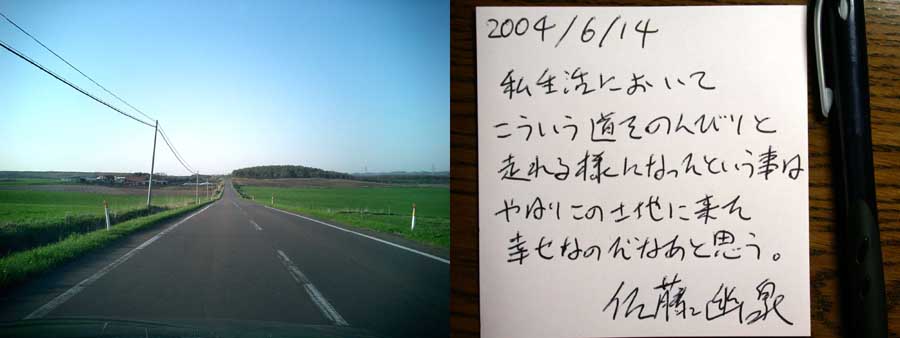 2004/6/14
私生活において
こういう道をのんびりと
走れる様になったという事は
やはりこの土地に来た
幸せなのだなあと思う。
佐藤幽泉